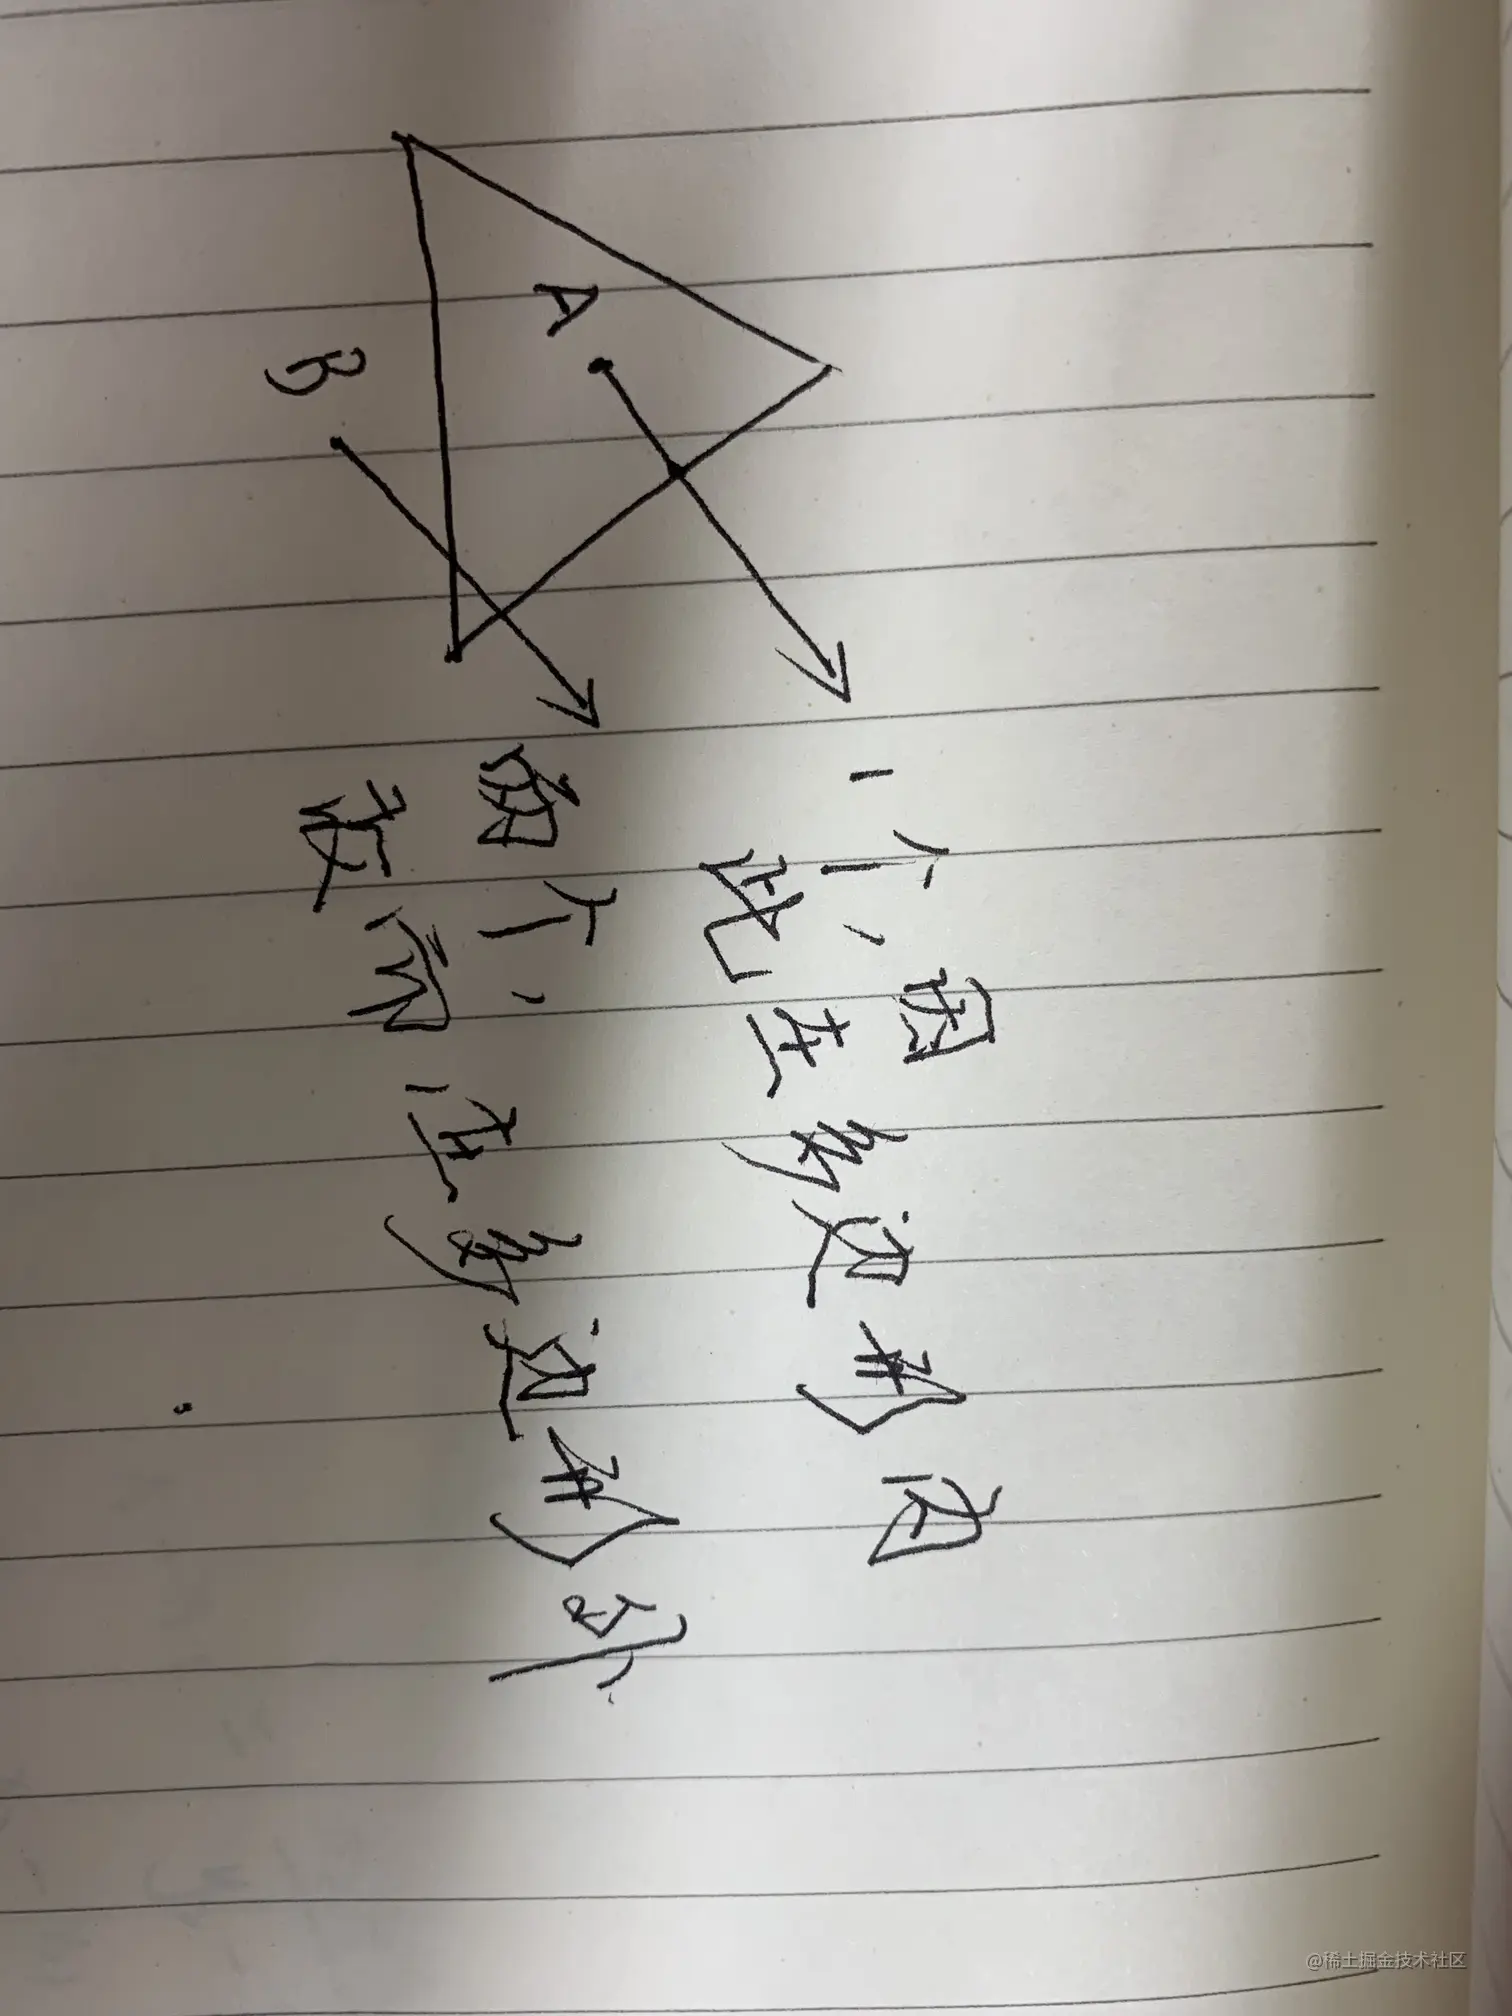 A
B
1个,因
此在多边形内
两个,
故而在多边形外
@稀土掘金技术社区